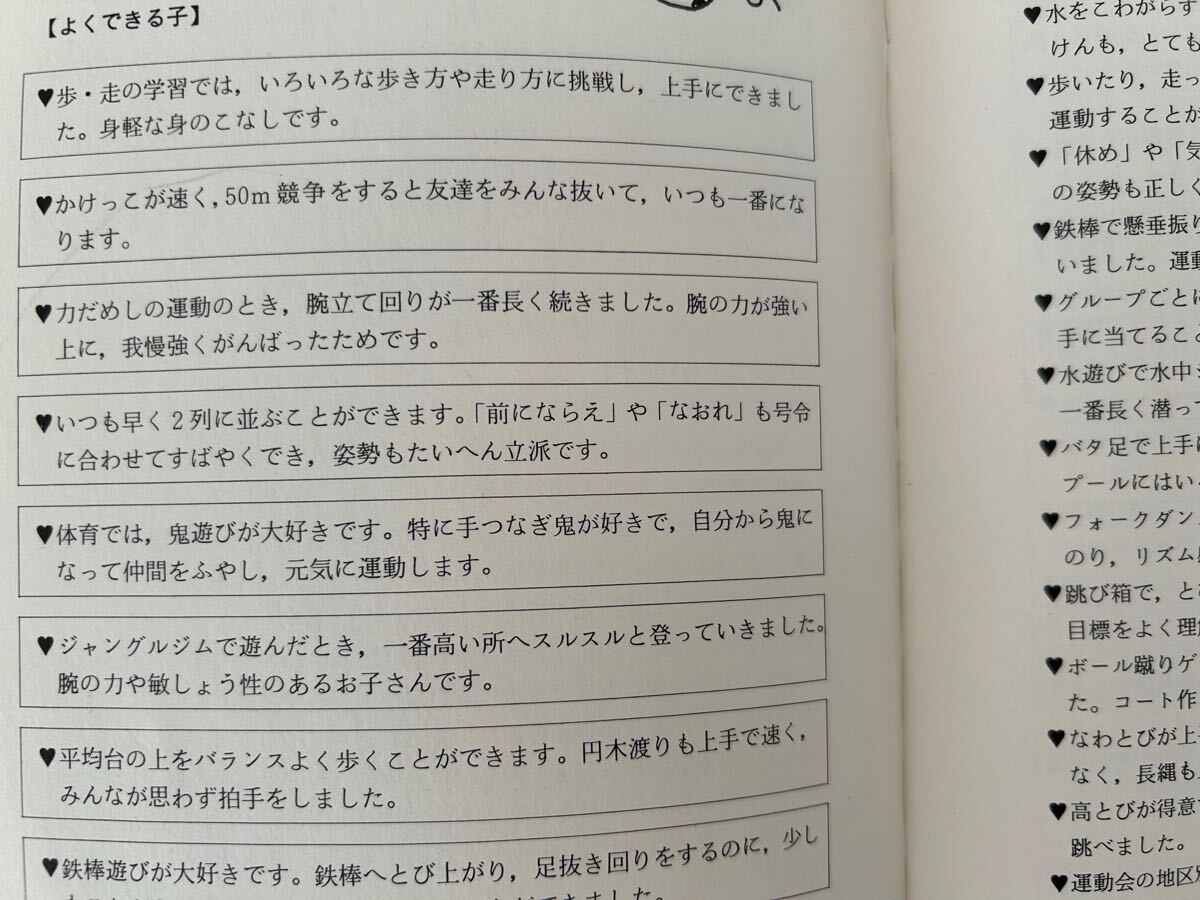 【よくできる子】
♥歩・走の学習では，いろいろな歩き方や走り方に挑戦し，上手にできまし
た。身軽な身のこなしです。
♥かけっこが速く，50m競争をすると友達をみんな抜いて，いつも一番にな
ります。
♥力だめしの運動のとき，腕立て回りが一番長く続きました。腕の力が強い
上に，我慢強くがんばったためです。
♥いつも早く2列に並ぶことができます。「前にならえ」や「なおれ」も号令
に合わせてすばやくでき，姿勢もたいへん立派です。
♥体育では，鬼遊びが大好きです。特に手つなぎ鬼が好きで，自分から鬼に
なって仲間をふやし，元気に運動します。
♥ジャングルジムで遊んだとき，一番高い所へスルスルと登っていきました。
腕の力や敏しょう性のあるお子さんです。
♥平均台の上をバランスよく歩くことができます。円木渡りも上手で速く，
みんなが思わず拍手をしました。
♥鉄棒遊びが大好きです。鉄棒へとび上がり，足抜き回りをするのに，少し
ができました。
♥水をこわがらず
けんも，とても
♥歩いたり，走っ
運動することが
♥「休め」や「気
の姿勢も正しく
♥鉄棒で懸垂振り
いました。運動
♥グループごとに
手に当てること
♥水遊びで水中ジ
一番長く潜って
♥バタ足で上手に
プールにはい
♥フォークダン
のり，リズム感
♥跳び箱で，とび
目標をよく理解
♥ボール蹴りゲ
た。コート作
♥なわとびが上手
なく，長縄も
♥高とびが得意
跳べました。
♥運動会の地区別